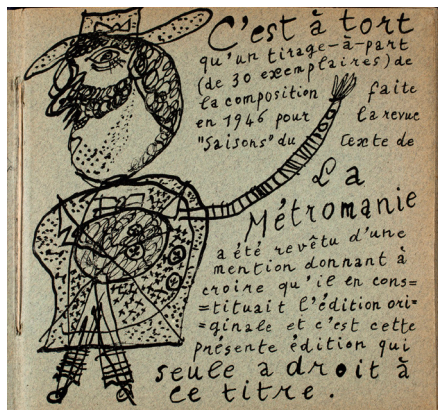 C'est à tort
qu'un tirage-à-part
(de 30 exemplaires) de
la composition faite
en 1946 pour la revue
"Saisons" du texte de
La
Métromanie
a été revêtu d'une
mention donnant à
croire qu'il en cons=
=tituait l'édition ori=
=ginale et c'est cette
présente édition qui
seule a droit à
ce titre.